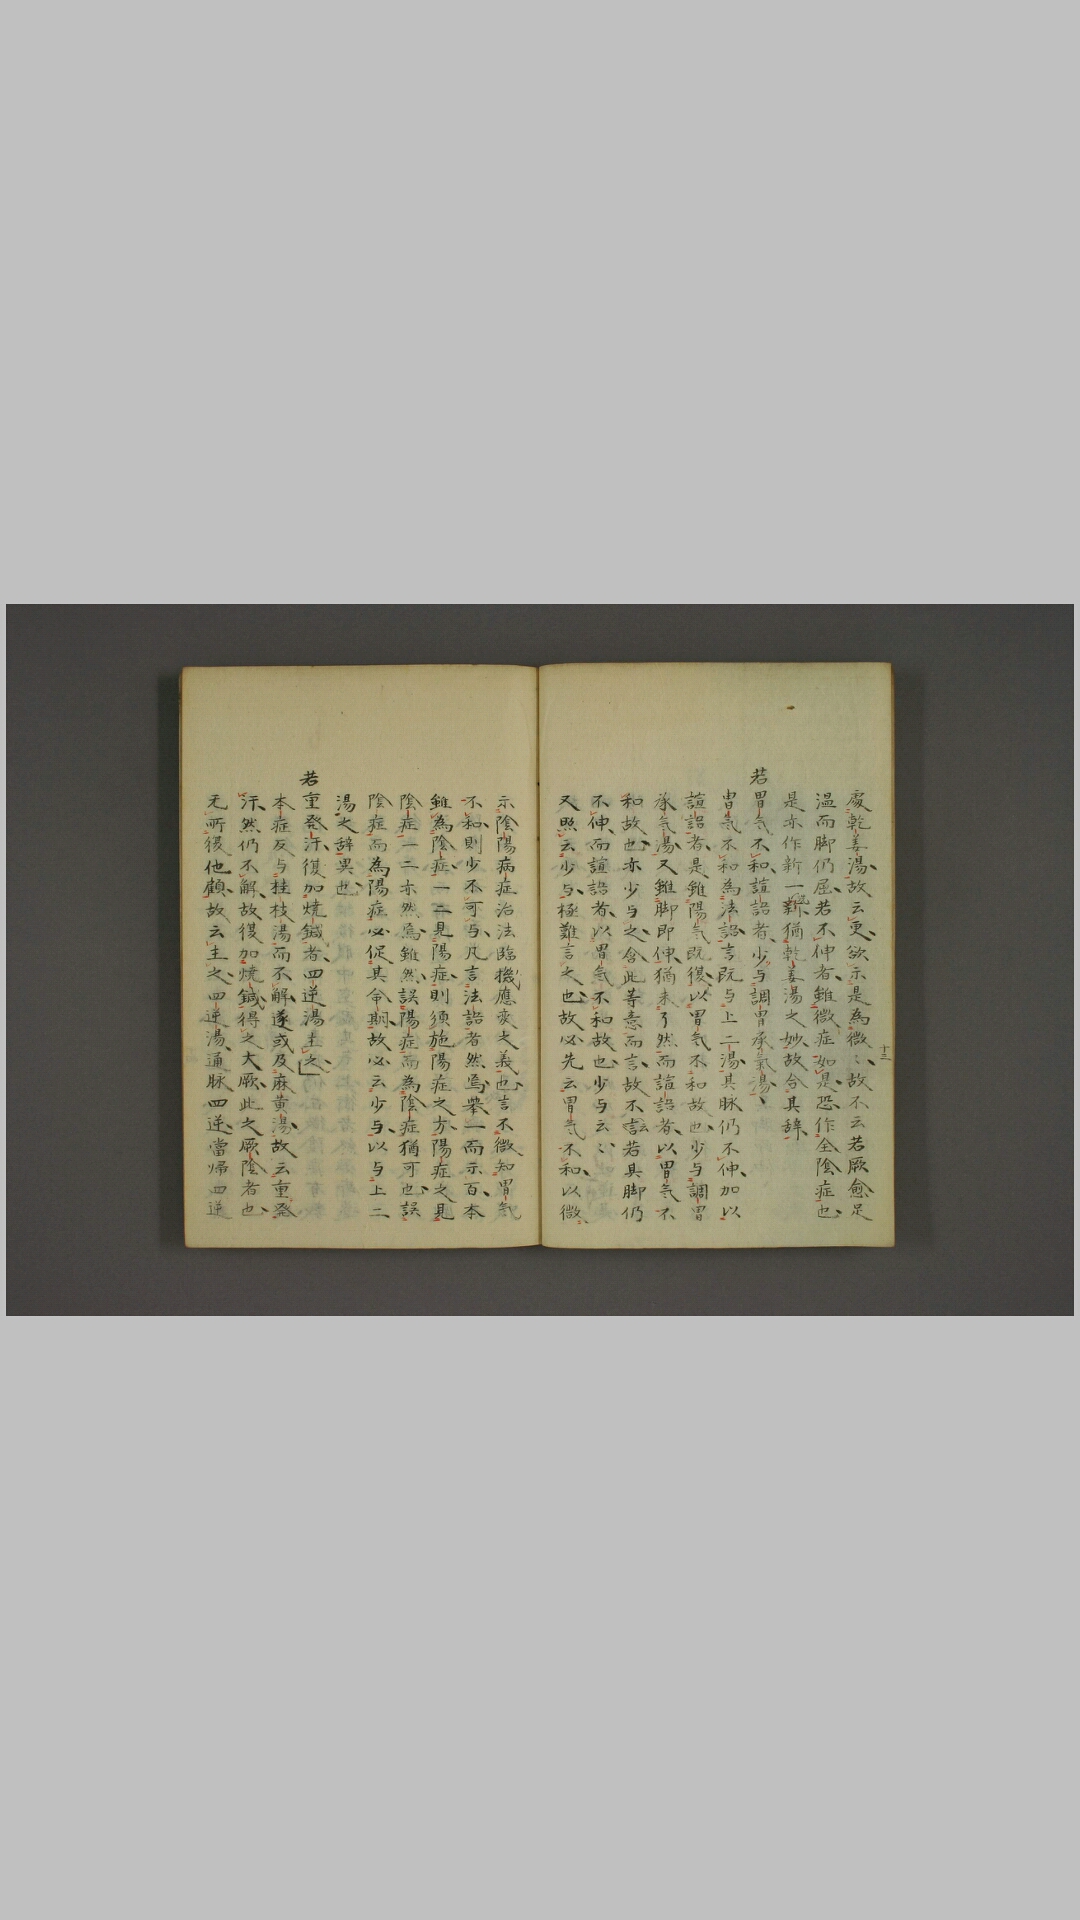 處乾姜湯故云更欲示是為微〻故不云若厥愈足
温而脚仍屈若不伸者雖微症如是恐作全陰症也
是亦作新一新猶乾姜湯之妙故合其辞
若胃气不和諠語者少与調胃承氣湯
胃气不和為法語言既与上二湯其脉仍不伸加以
諠語者是雖陽气既復以胃气不和故也少与調胃
承气湯又雖脚即伸猶未了然而諠語者以胃气不
和故也亦少与之含此等意而言故不言若其脚仍
不伸而諠語者以胃气不和故也少与云〻
又照云少与極難言之也故必先云胃气不和以微
十三
示陰陽病症治法臨機應変之義也言不微知胃气
不和則少不可与凡言法語者然焉挙一而示百本
雖為陰症一二見陽症則須施陽症之方陽症之見
陰症一二亦然焉雖然誤陽症而為陰症猶可也誤
陰症而為陽症必促其命期故必云少与以与上二
湯之辞異也
若重發汗復加焼鍼者四逆湯主之
本症反与桂枝湯而不解遂或及麻黄湯故云重発
汗然仍不解故復加焼鍼得之大厥此之厥陰者也
无所復他顧故云主之四逆湯通脉四逆當帰四逆